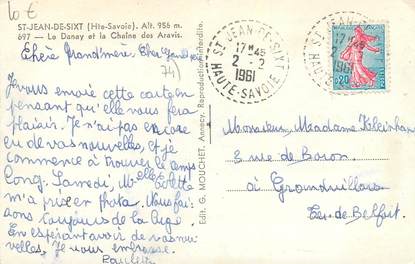 10 €
ST-JEAN-DE-SIXT (Hte-Savoie). Alt. 956 m.
697 - Le Danay et la Chaîne des Aravis.
Chère Grand'mère, Cher Grand père
74)
Je vous envoie cette carte en
pensant qu'elle vous fera
plaisir. Je n'ai pas encore
eu de vos nouvelles, et je
commence à trouver le temps
long. Samedi, Melle Colette
m'a pris en photo. Nous fai-
sons toujours de la luge.
En espérant avoir de vos nou-
velles. Je vous embrasse.
Edit. G. MOUCHET, Annecy. Reproduction interdite.
ST-JEAN-DE-SIXT
17H45
2-2
1961
HAUTE-SAVOIE
ST-JEAN-DE-SIXT
17H45
2-2
1961
HAUTE-SAVOIE
0,20
Monsieur, Madame Kleinhans
3 rue de Boron
à Grandvillars
Ter. de Belfort.